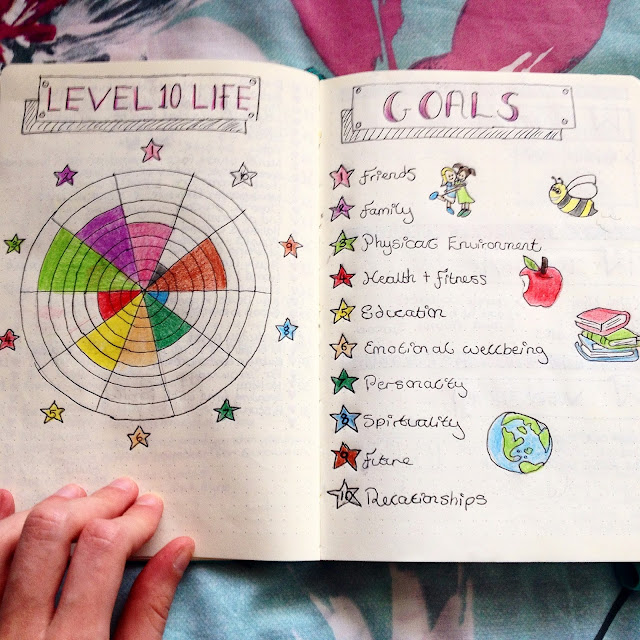 LEVEL 10 LIFE
1
2
10
3
9
4
8
5
7
6
GOALS
1 Friends
2 Family
3 Physical Environment
4 Health + fitness
5 Education
6 Emotional wellbeing
7 Personality
8 Spirituality
9 Future
10 Relationships